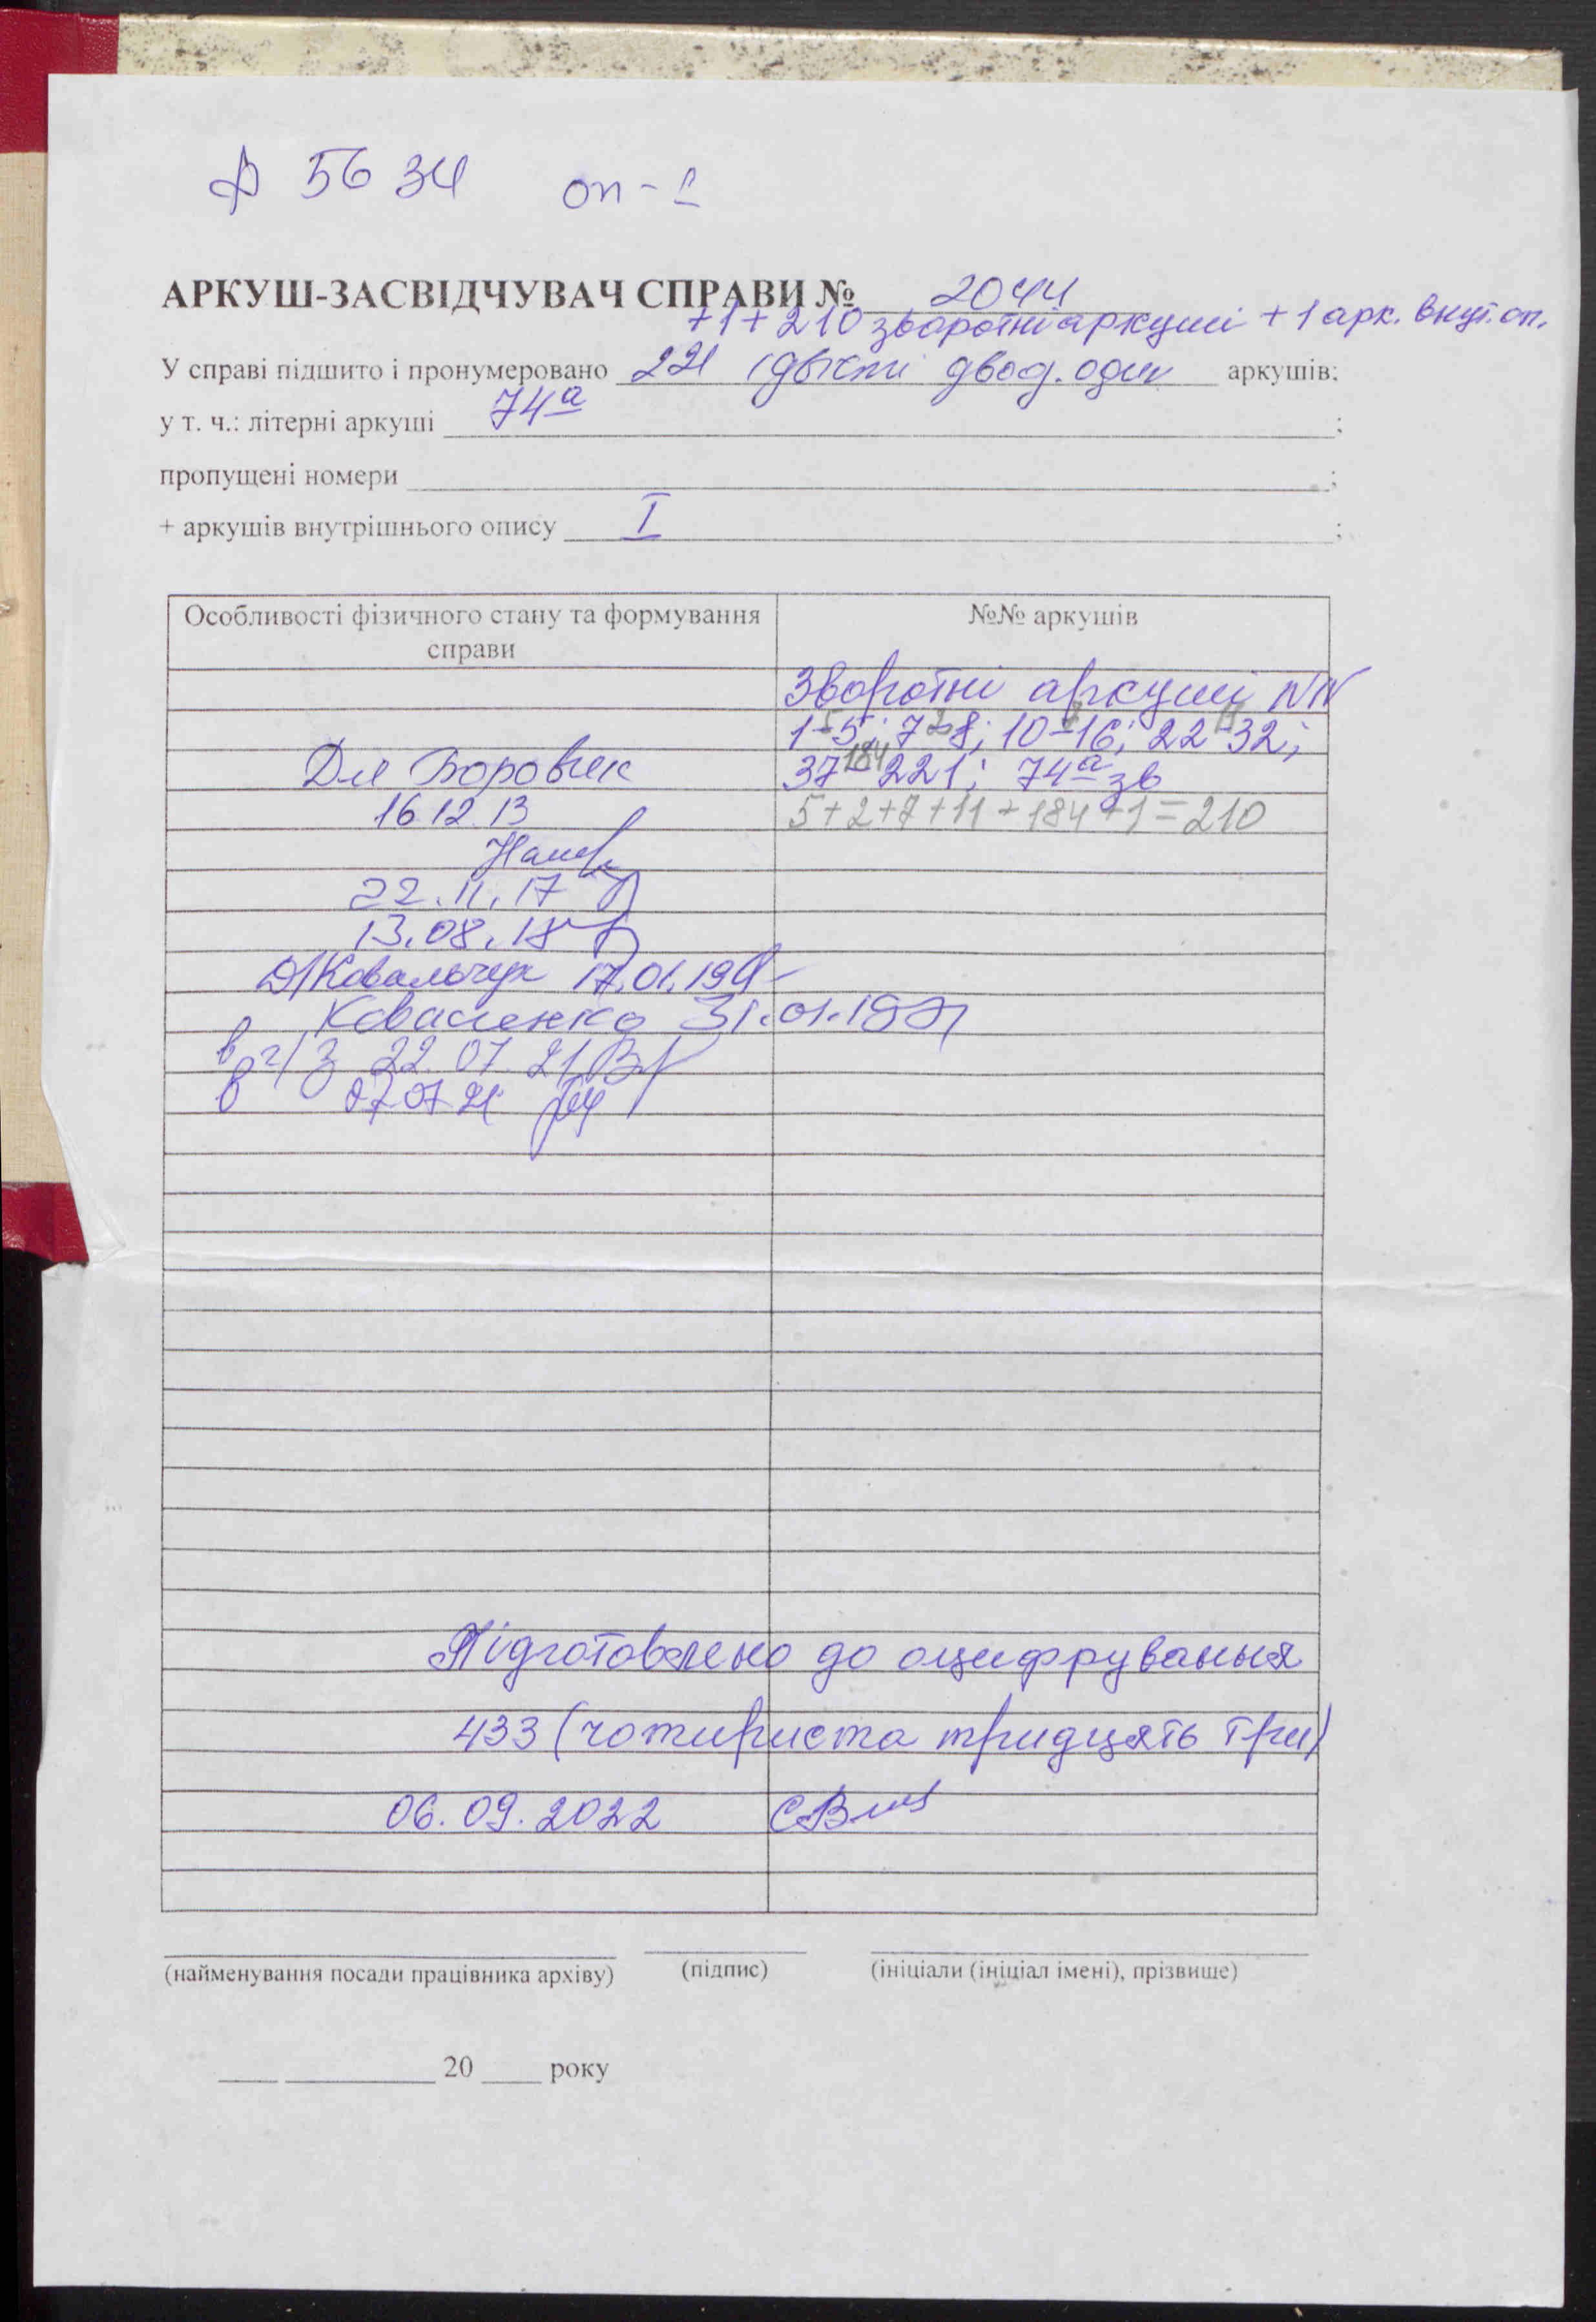 Р 5634 оп-1
АРКУШ-ЗАСВІДЧУВАЧ СПРАВИ № 2044
+1+210 зворотні аркуші + 1 арк. внут. оп.
У справі підшито і пронумеровано 221 (двісті двод. один аркушів;
у т. ч.: літерні аркуші 74а ;
пропущені номери ;
+ аркушів внутрішнього опису I ;
Особливості фізичного стану та формування справи
№№ аркушів
Зворотні аркуші NN
1-5; 7-8; 10-16; 22-32;
5 2 7 11
37-221; 74а зв
184
5+2+7+11+184+1=210
16.12.13
22.11.17
13.08.18
Ковальчук 17.01.19
Коваленко 31.01.19
22.07.21
07 21
Підготовлено до оцифрування
433 (чотириста тридцять три)
06.09.2022
(найменування посади працівника архіву) (підпис) (ініціали (ініціал імені), прізвище)
20 року